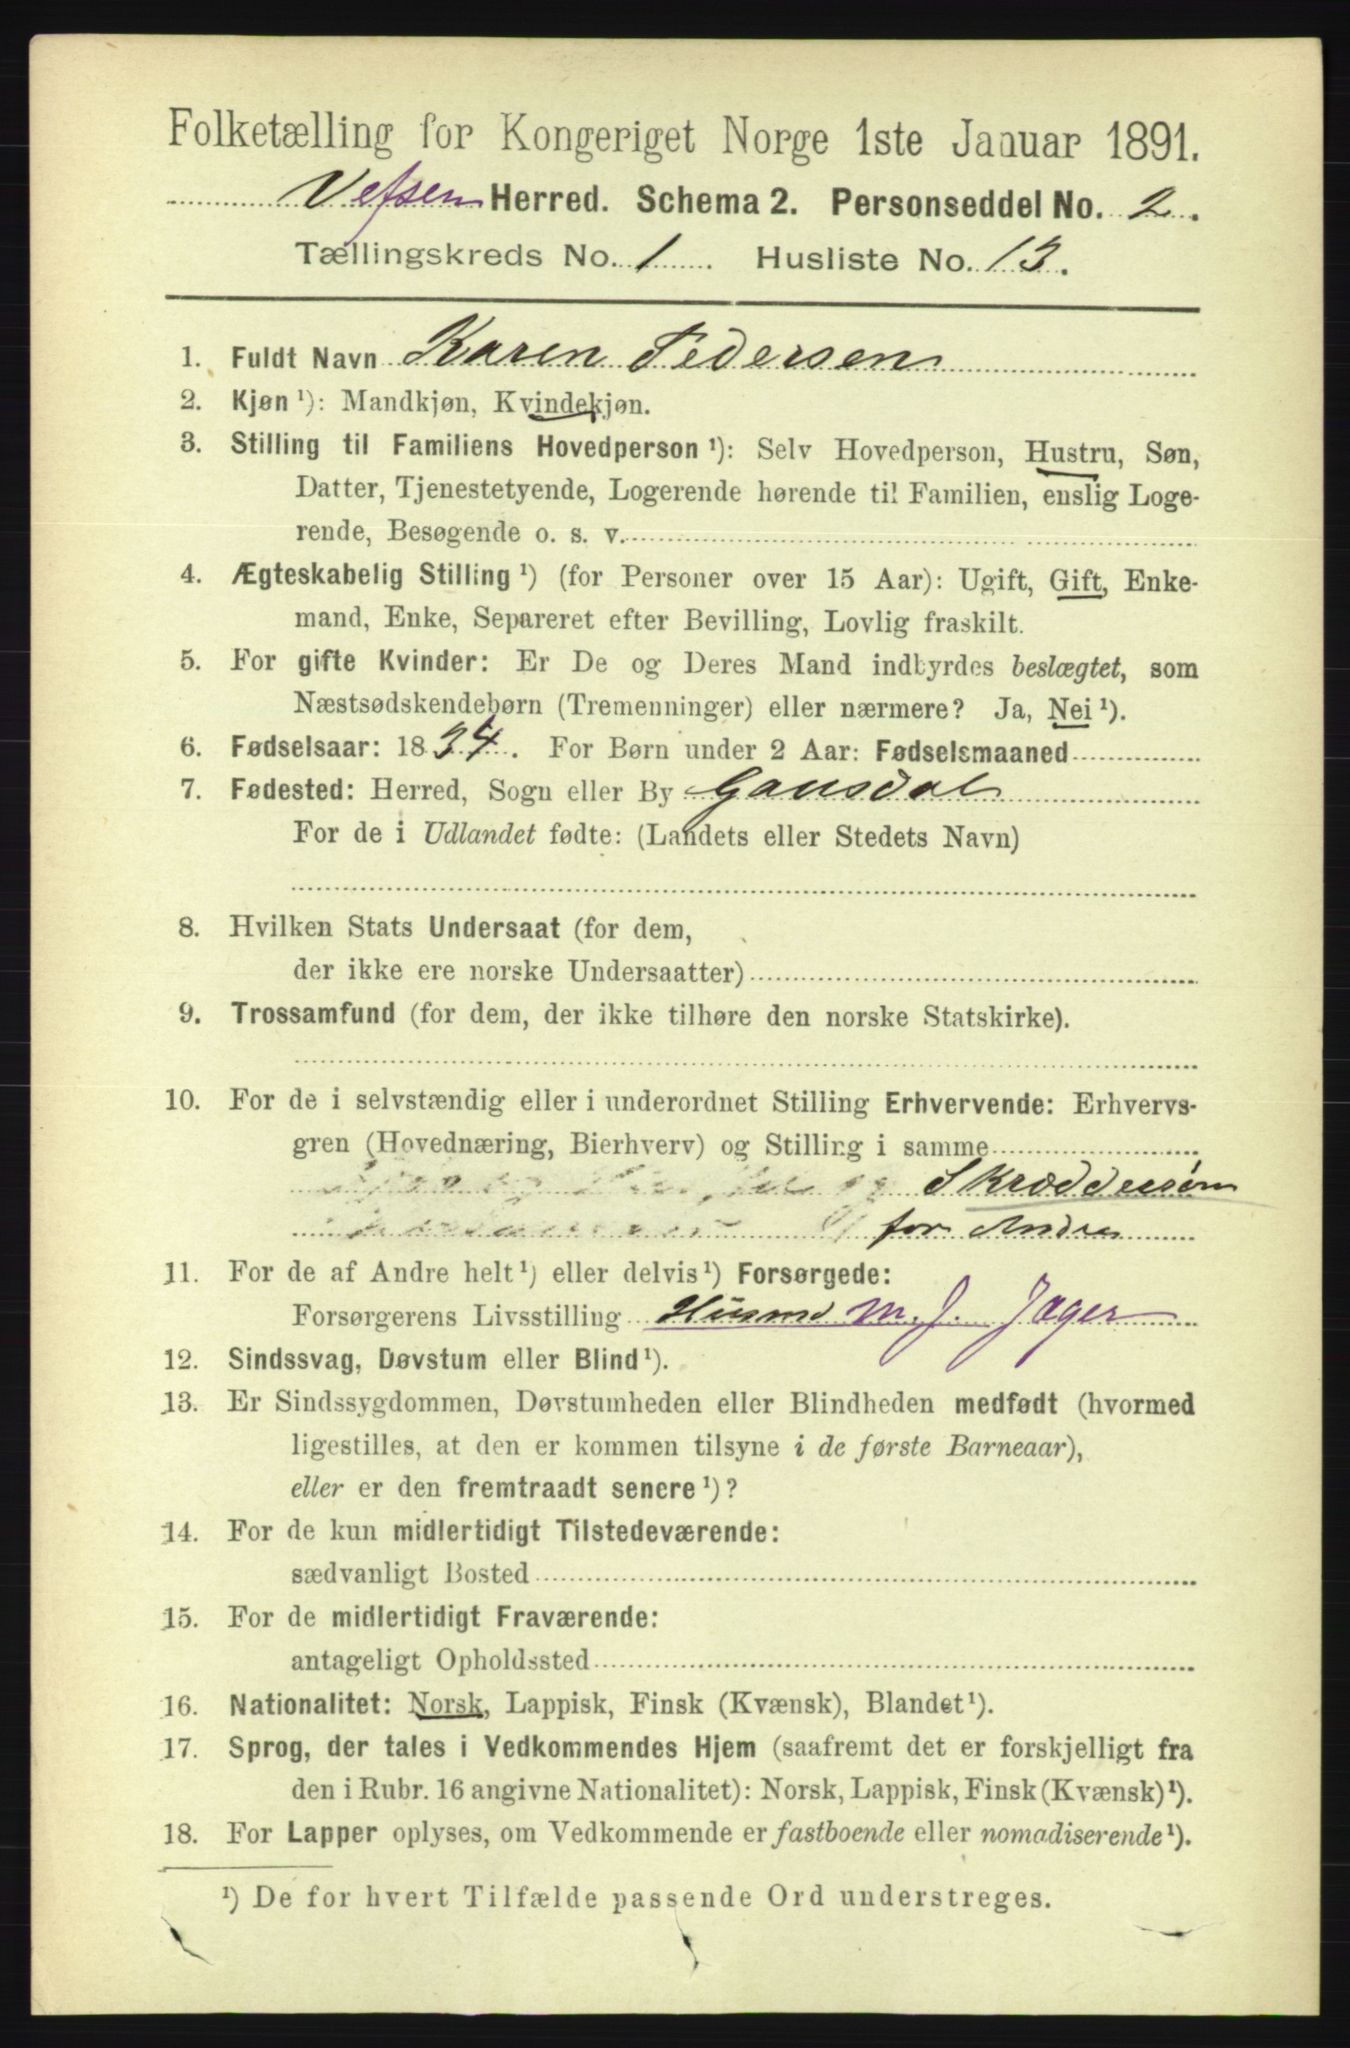 Folketælling for Kongeriget Norge 1ste Januar 1891.
Vefsen Herred. Schema 2. Personseddel No. 2.
Tællingskreds No. 1 Husliste No. 13.
1. Fuldt Navn Karen Pedersen
2. Kjøn ¹): Mandkjøn, Kvindekjøn.
3. Stilling til Familiens Hovedperson ¹): Selv Hovedperson, Hustru, Søn,
Datter, Tjenestetyende, Logerende hørende til Familien, enslig Loge-
rende, Besøgende o. s. v.
4. Ægteskabelig Stilling ¹) (for Personer over 15 Aar): Ugift, Gift, Enke-
mand, Enke, Separeret efter Bevilling, Lovlig fraskilt.
5. For gifte Kvinder: Er De og Deres Mand indbyrdes beslægtet, som
Næstsødskendebørn (Tremenninger) eller nærmere? Ja, Nei ¹).
6. Fødselsaar: 1834. For Børn under 2 Aar: Fødselsmaaned
7. Fødested: Herred, Sogn eller By Gausdal
For de i Udlandet fødte: (Landets eller Stedets Navn)
8. Hvilken Stats Undersaat (for dem,
der ikke ere norske Undersaatter)
9. Trossamfund (for dem, der ikke tilhøre den norske Statskirke).
10. For de i selvstændig eller i underordnet Stilling Erhvervende: Erhvervs-
gren (Hovednæring, Bierhverv) og Stilling i samme
Skræddersøm
for Andre
11. For de af Andre helt ¹) eller delvis ¹) Forsørgede:
Forsørgerens Livsstilling Husmd m. J. Jæger
12. Sindssvag, Døvstum eller Blind ¹).
13. Er Sindssygdommen, Døvstumheden eller Blindheden medfødt (hvormed
ligestilles, at den er kommen tilsyne i de første Barneaar),
eller er den fremtraadt senere ¹)?
14. For de kun midlertidigt Tilstedeværende:
sædvanligt Bosted
15. For de midlertidigt Fraværende:
antageligt Opholdssted
16. Nationalitet: Norsk, Lappisk, Finsk (Kvænsk), Blandet ¹).
17. Sprog, der tales i Vedkommendes Hjem (saafremt det er forskjelligt fra
den i Rubr. 16 angivne Nationalitet): Norsk, Lappisk, Finsk (Kvænsk) ¹).
18. For Lapper oplyses, om Vedkommende er fastboende eller nomadiserende ¹).
¹) De for hvert Tilfælde passende Ord understreges.